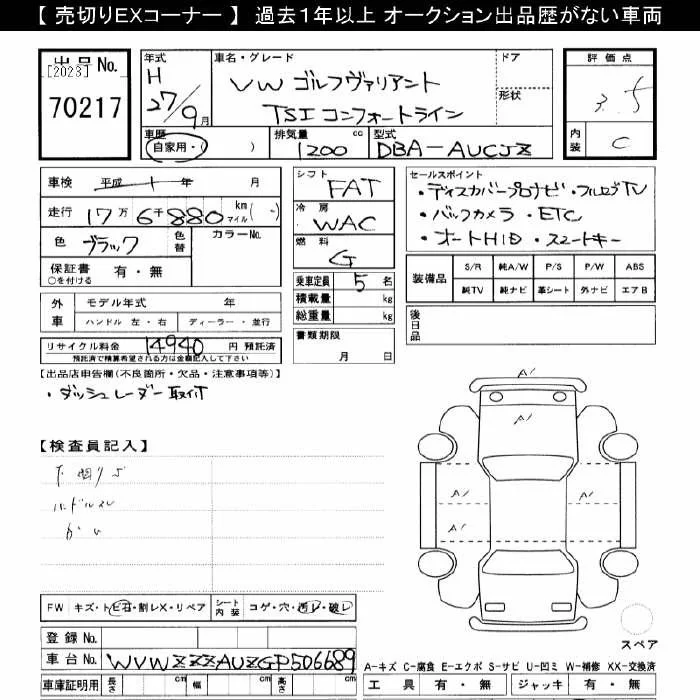 【 売切りEXコーナー 】 過去1年以上 オークション出品歴がない車両
出品No.
[2023]
70217
年式
H
27/9月
車名・グレード
VW ゴルフヴァリアント
TSI コンフォートライン
ドア
形状
評価点
3.5
内装
C
車歴
自家用・( )
排気量
1200 cc
型式
DBA-AUCJZ
車検 平成 年 月
走行 17万6千880 km マイル ( - )
色 ブラック
色替
カラーNo.
保証書 有・無
○を付ける
外車
モデル年式 年
ハンドル 左・右 ディーラー・並行
リサイクル料金 14940 円 預託済
預託済で精算希望される方は金額記入して下さい
シフト
FAT
冷房
WAC
燃料
G
乗車定員 5 名
積載量 kg
総重量 kg
書類期限
月 日
セールスポイント
・ディスカバープロナビ・フルセグTV
・バックカメラ・ETC
・オートHID・スマートキー
装備品
S/R 純A/W P/S P/W ABS
純TV 純ナビ 革シート 外ナビ エアB
後日品
【出品店申告欄(不良箇所・欠品・注意事項等)】
・ダッシュレーダー取付
【検査員記入】
下回りS
ハンドルスレ
A1
A1
A1
A1
A1
FW キズ・トビ石・割レX・リペア
シート内装 コゲ・穴・汚レ・破レ
登録No.
車台No. WVWZZZAUZGP506689
車庫証明用 長さ 幅 高さ
スペア
A-キズ C-腐食 E-エクボ S-サビ U-凹ミ W-補修 XX-交換済
工具 有・無 ジャッキ 有・無